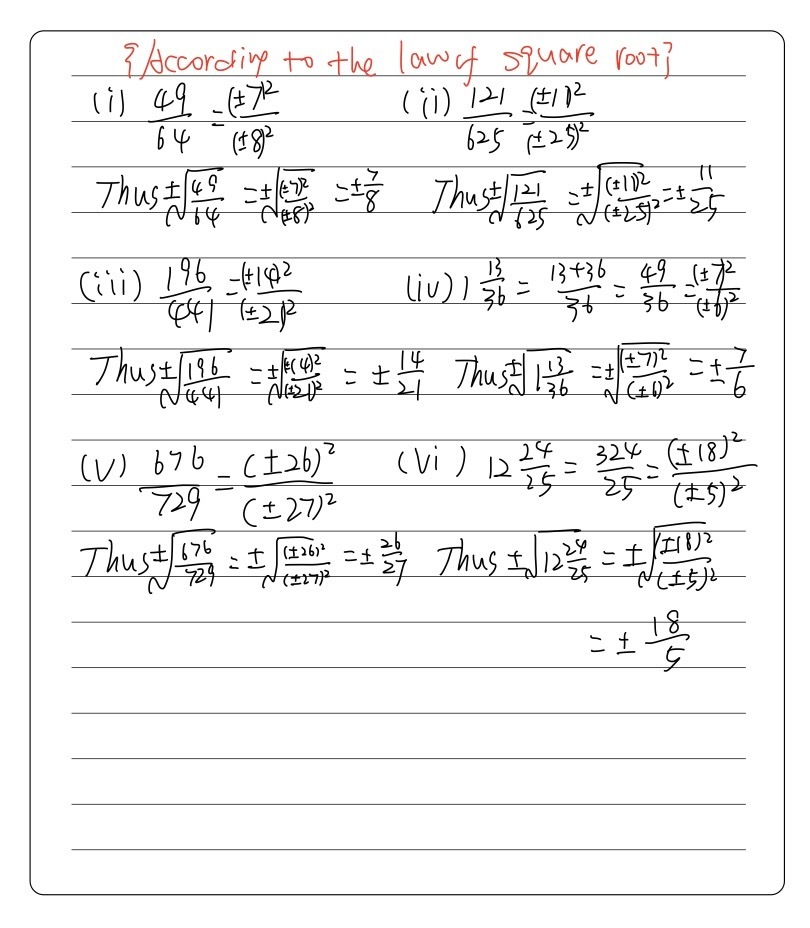 {According to the law of square root}
(i) 49/64 = (±7)²/(±8)² (ii) 121/625 = (±11)²/(±25)²
Thus ±√(49/64) = ±√((±7)²/(±8)²) = ±7/8 Thus ±√(121/625) = ±√((±11)²/(±25)²) = ±11/25
(iii) 196/441 = (±14)²/(±21)² (iv) 1 13/36 = 13+36/36 = 49/36 = (±7)²/(±6)²
Thus ±√(196/441) = ±√((±14)²/(±21)²) = ±14/21 Thus ±√(1 13/36) = ±√((±7)²/(±6)²) = ±7/6
(V) 676/729 = (±26)²/(±27)² (Vi) 12 24/25 = 324/25 = (±18)²/(±5)²
Thus ±√(676/729) = ±√((±26)²/(±27)²) = ±26/27 Thus ±√(12 24/25) = ±√((±18)²/(±5)²)
= ±18/5